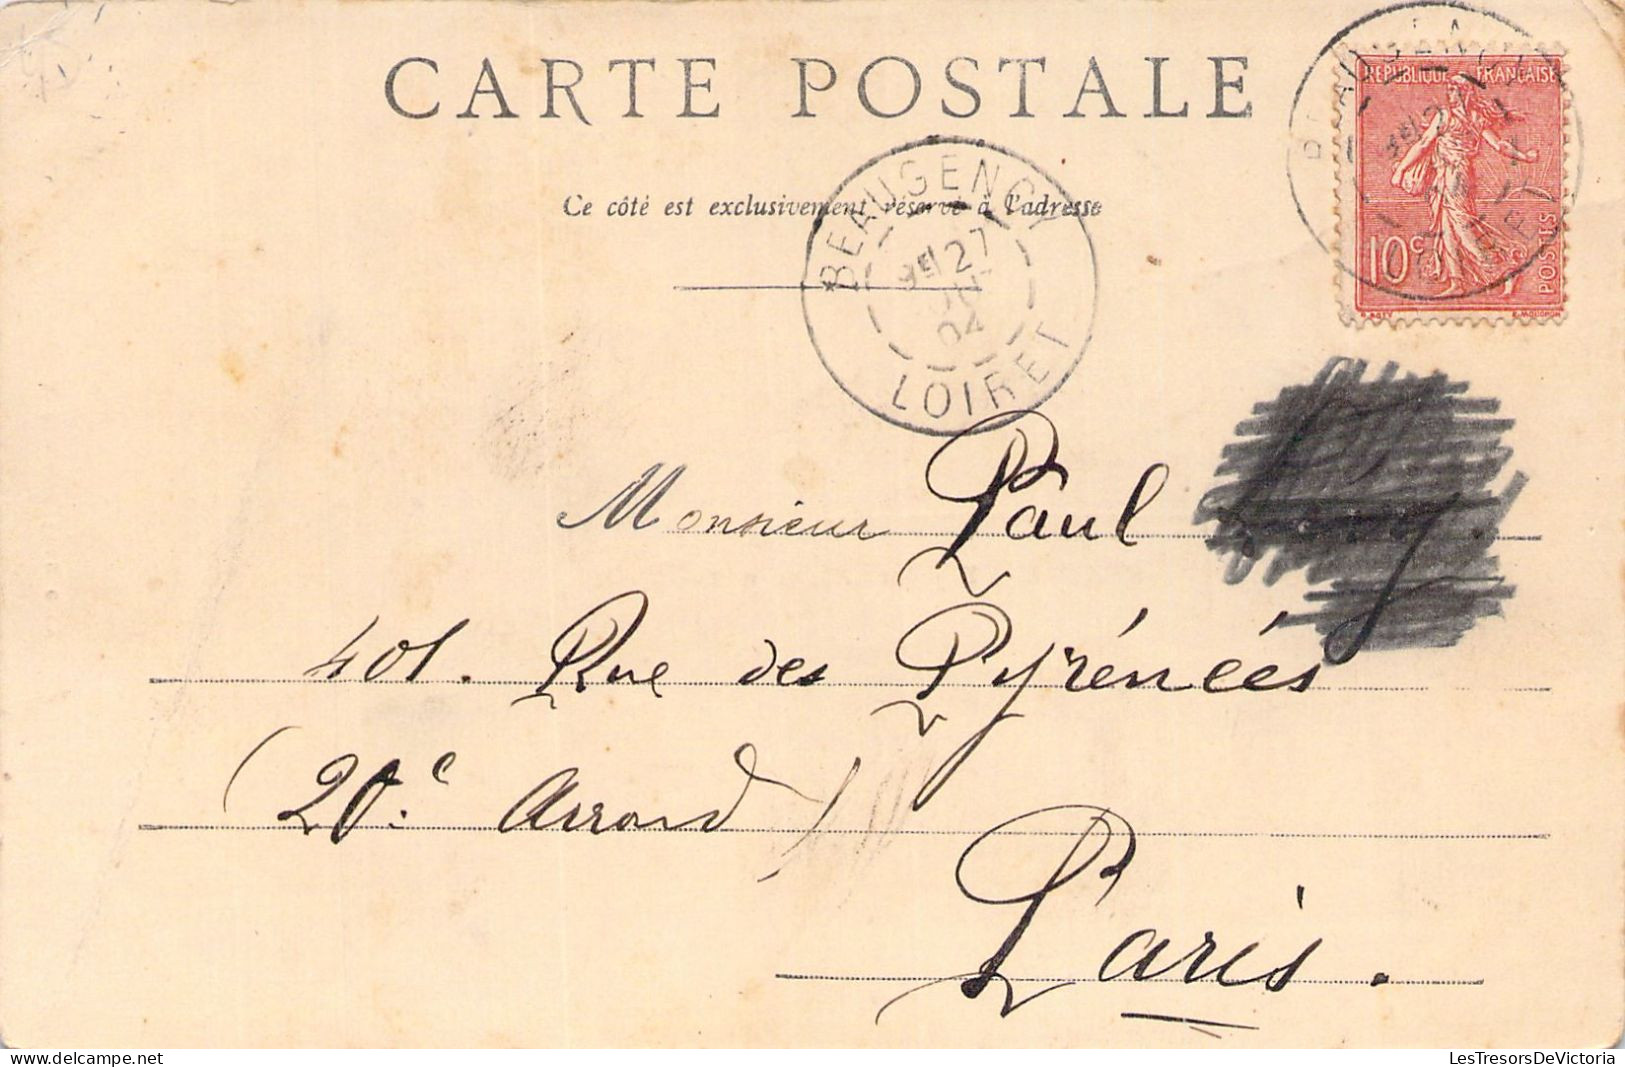 CARTE POSTALE
Ce côté est exclusivement réservé à l'adresse
RÉPUBLIQUE FRANÇAISE
10c
POSTES
O. ROTY
E. MOUCHON
BEAUGENCY
27
04
LOIRET
Monsieur Paul
401. Rue des Pyrénées
(20.e Arrond)
Paris.
LesTresorsDeVictoria